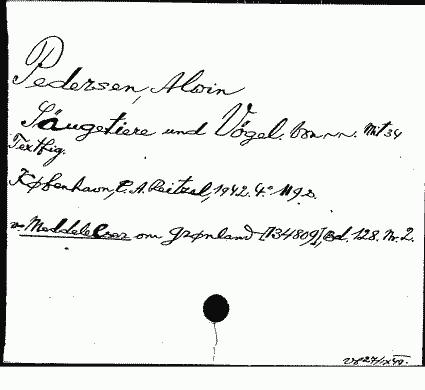 Pedersen, Alwin
Säugetiere und Vögel. Mit 34
Textfig.
København, C. A. Reitzel, 1942. 4.° 119 s.
Meddelelser om Grønland [34809], Bd. 128. Nr. 2.